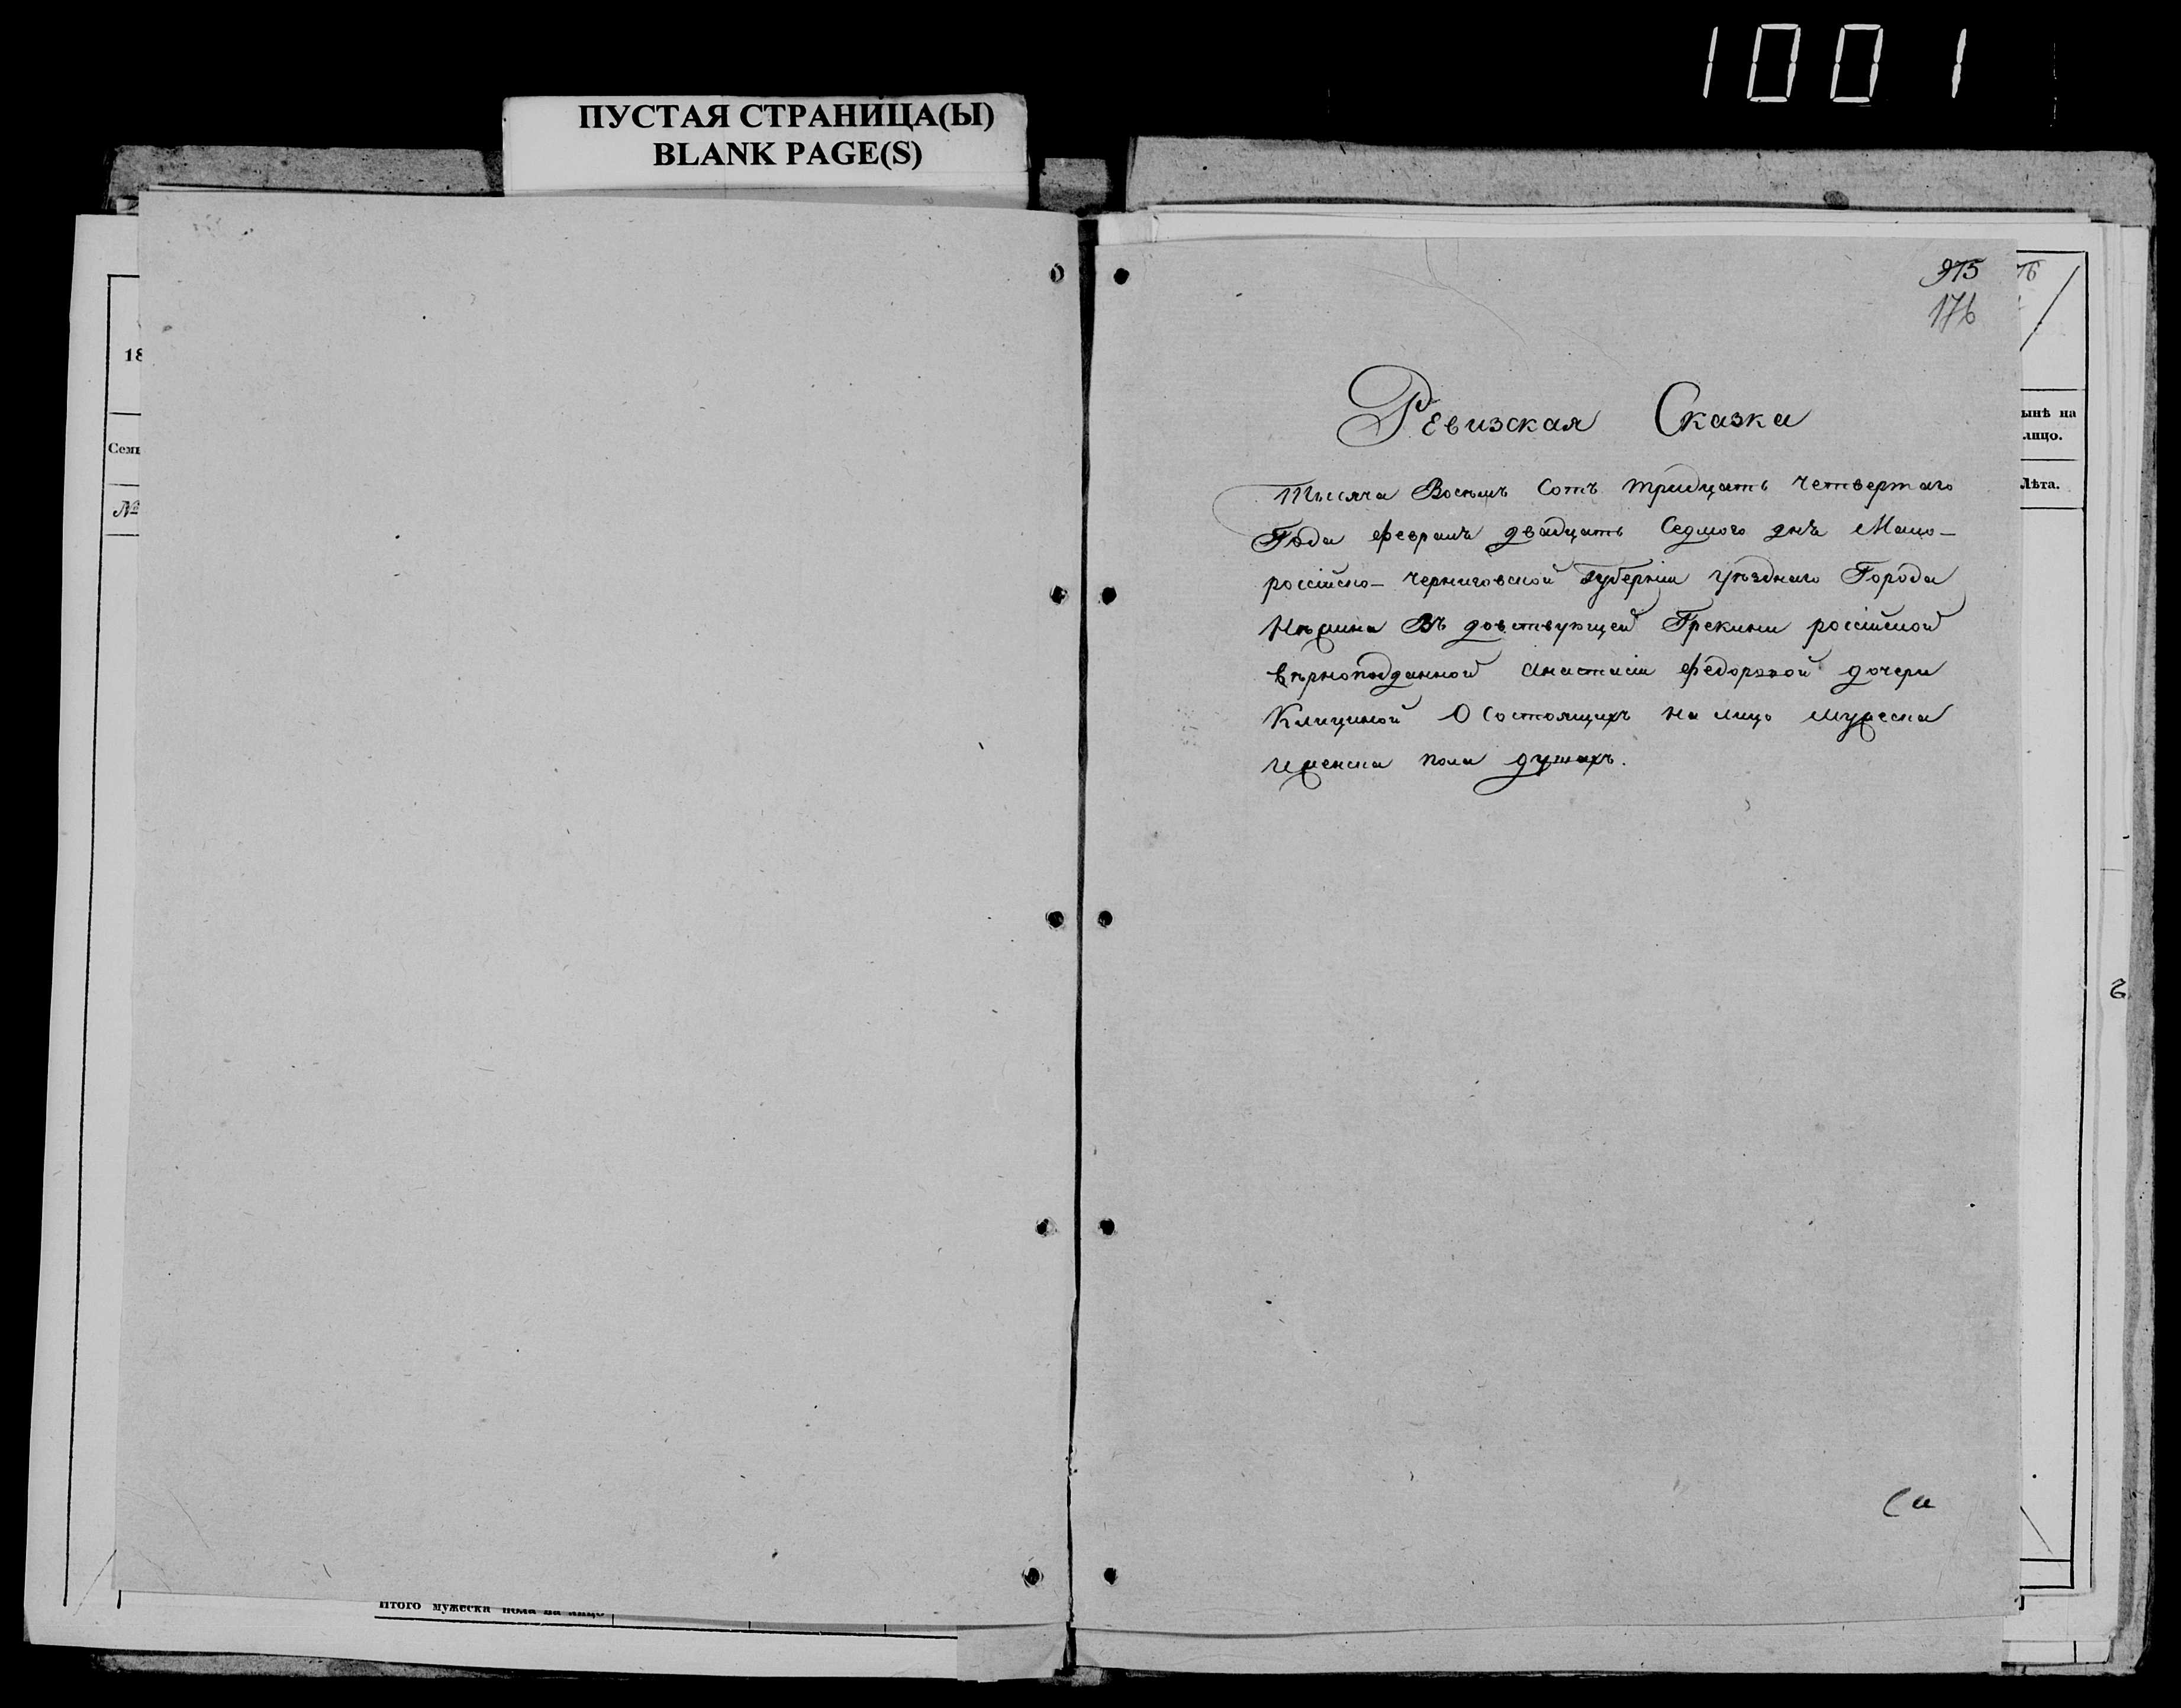 1001
ПУСТАЯ СТРАНИЦА(Ы)
BLANK PAGE(S)
18
Семь
№
Итого мужеска пола на лицо
915
176
76
ынѣ на
лицо.
Лѣта.
Ревизская Сказка
Тысяча Восемь Сотъ тридцать четвертаго
Года февраля двадцать Седмого дня Мало-
россійско-черниговской губерніи уѣзднаго Города
Нѣжина Въ довствующей Грекини россійской
вѣрноподданной Анастасіи федоровой дочери
Клициной О Состоящихъ на лицо мужеска
и женска пола душахъ.